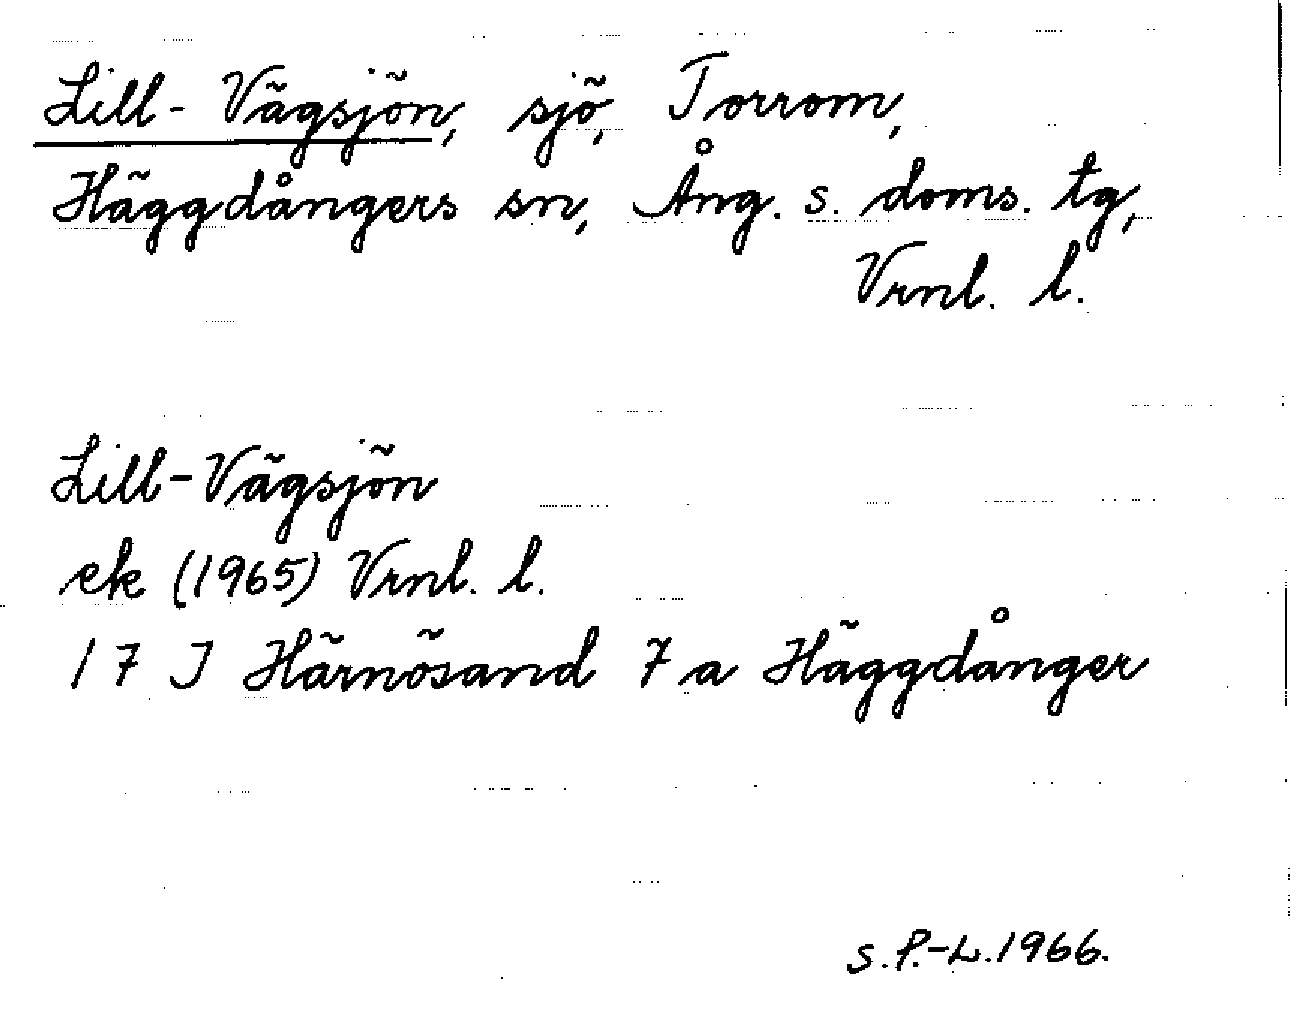 Lill-Vägsjön, sjö, Torrom,
Häggdångers sn, Ång. s. doms. tg,
Vrnl. l.
Lill-Vägsjön
ek (1965) Vrnl. l.
17 J Härnösand 7a Häggdånger
S.P.-L.1966.